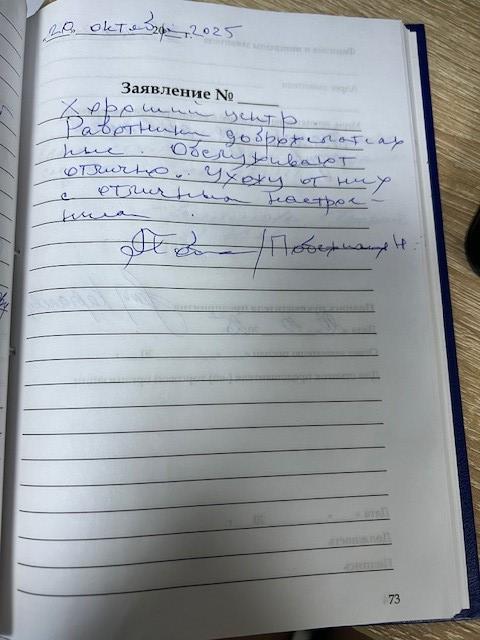 20 октября 2025
Заявление №
Хороший центр
Работники доброжелатель
ные. Обслуживают
отлично. Ухожу от них
с отличным настрое-
нием.
73